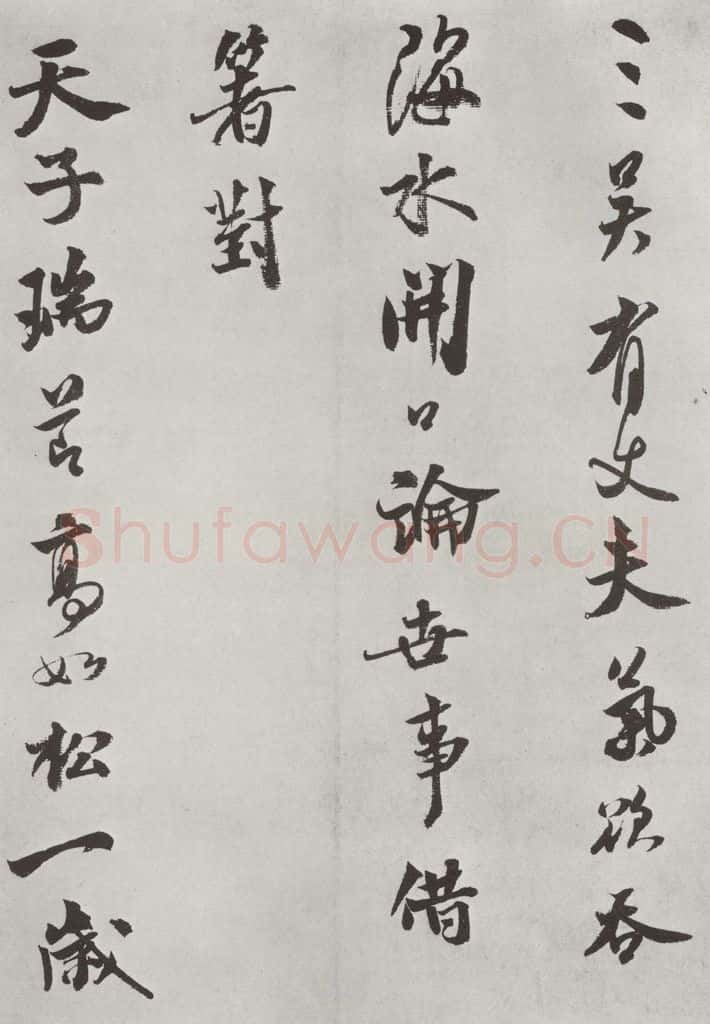 三吴有丈夫氣欲吞
海水開口論世事借
箸對
天子瑞节高如松一歲
Shufawang.CN